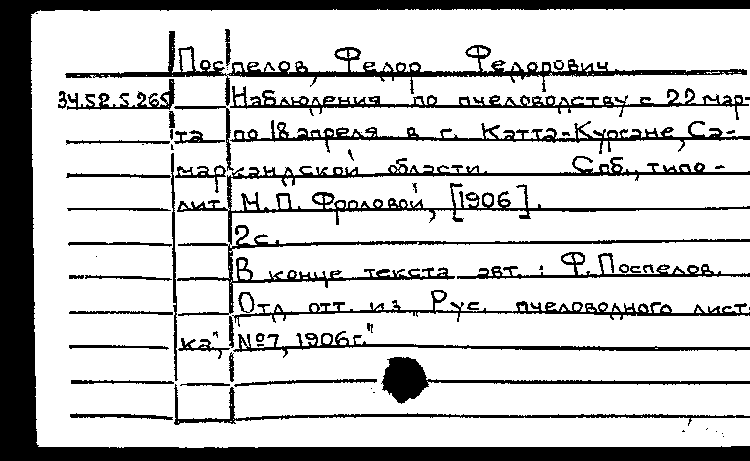 Поспелов, Федор Федорович.
34.52.5.265 Наблюдения по пчеловодству с 22 мар-
та по 18 апреля в г. Катта-Кургане, Са-
маркандской области. Спб., типо-
лит. М. П. Фроловой, [1906].
2с.
В конце текста авт.: Ф. Поспелов.
Отд. отт. из „Рус. пчеловодного лист-
ка", №7, 1906г."